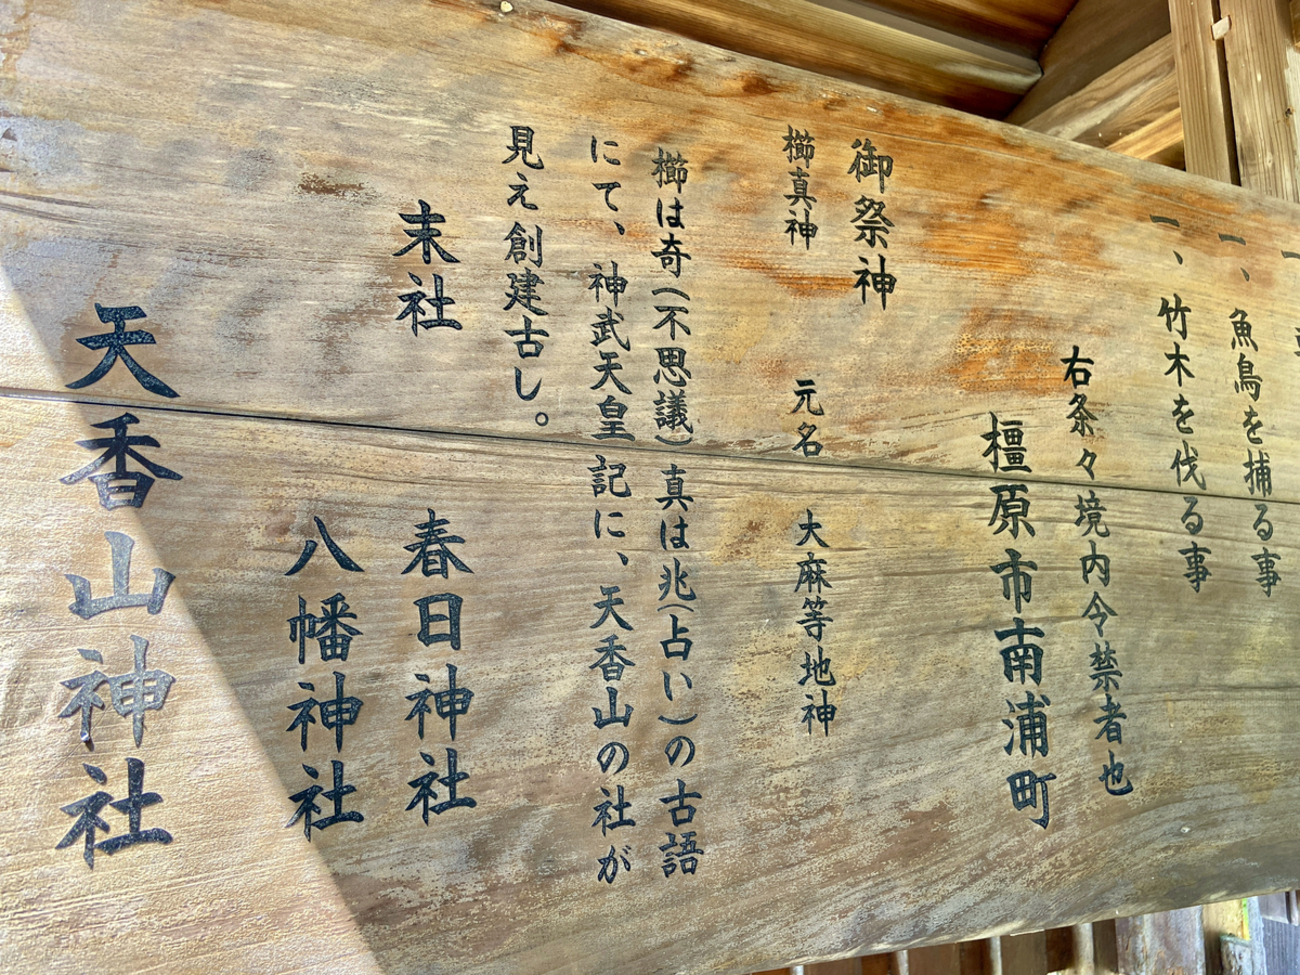 一、魚鳥を捕る事
一、竹木を伐る事
右条々境内令禁者也
橿原市南浦町
御祭神
櫛真神　元名　大麻等地神
櫛は奇(不思議)真は兆(占い)の古語
にて、神武天皇記に、天香山の社が
見え創建古し。
末社
春日神社
八幡神社
天香山神社